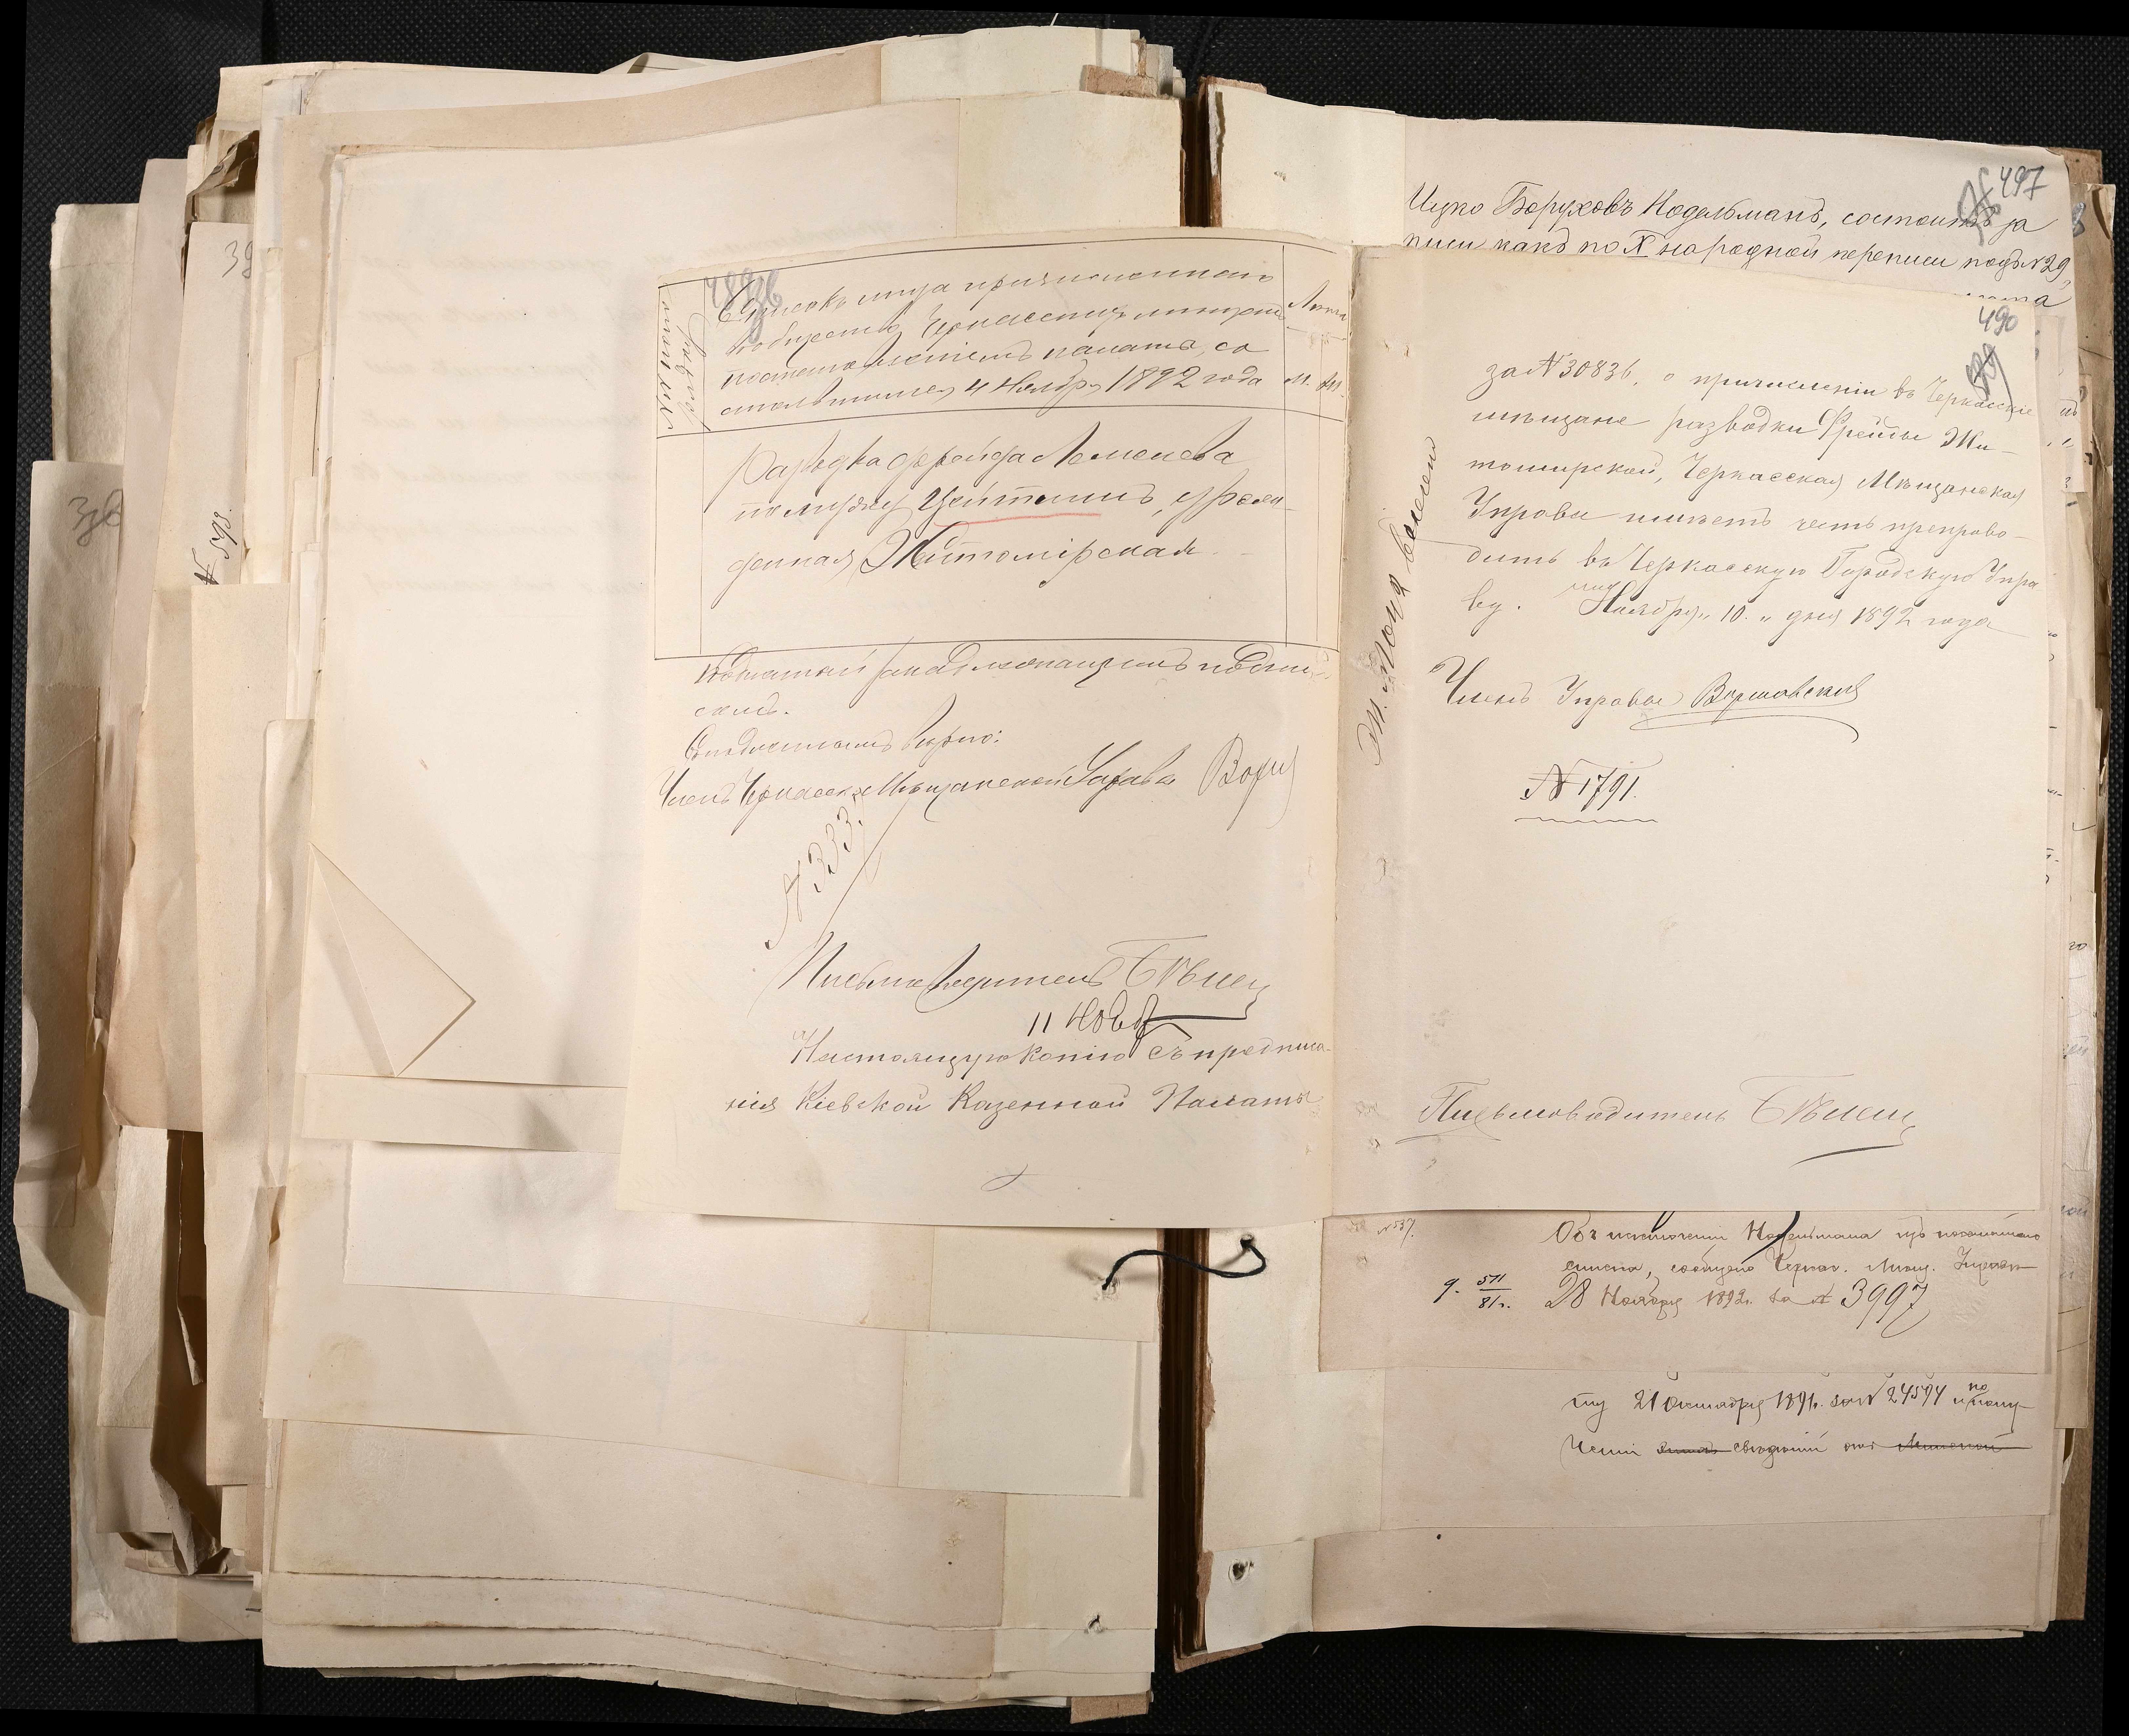 Списокъ лица причисленнаго
въ общество Черкасскихъ мещанъ
постановленіемъ палаты, со
стоявшимся 4 Ноября 1892 года
Лѣта
М. Ж.
Разводка Фрейда Лемелева
по мужу Цейтлинъ, урож-
денная Житомірская.
скимъ.
Съ подлиннымъ вѣрно:
Членъ Черкасск. Мѣщанской Управы
№ 333
Письмоводитель
11 Нояб
Настоящую копію съ предписа-
нія Кіевской Казенной Палаты
Ицко Боруховъ Нодельманъ, состоитъ за
писи какъ по X народной переписи подъ №29,
497
490
за №30836, о причисленіи въ Черкасскіе
мѣщане разводки Фрейды Жи-
томирской, Черкасская Мѣщанская
Управа имѣетъ честь препрово-
дить въ Черкасскую Городскую Упра
ву. Ноября "10." дня 1892 года
Членъ Управы Варшавскій
№1791.
Письмоводитель
№537.
Объ исключеніи Нодельмана изъ посемейнаго
списка, сообщено Черкас. Мѣщ. Управѣ
9. 511/81г. 28 Ноября 1892г. за № 3997
21 Октября 1891г. за № 24594 и по полу-
ченіи свѣдѣній
№ 593.